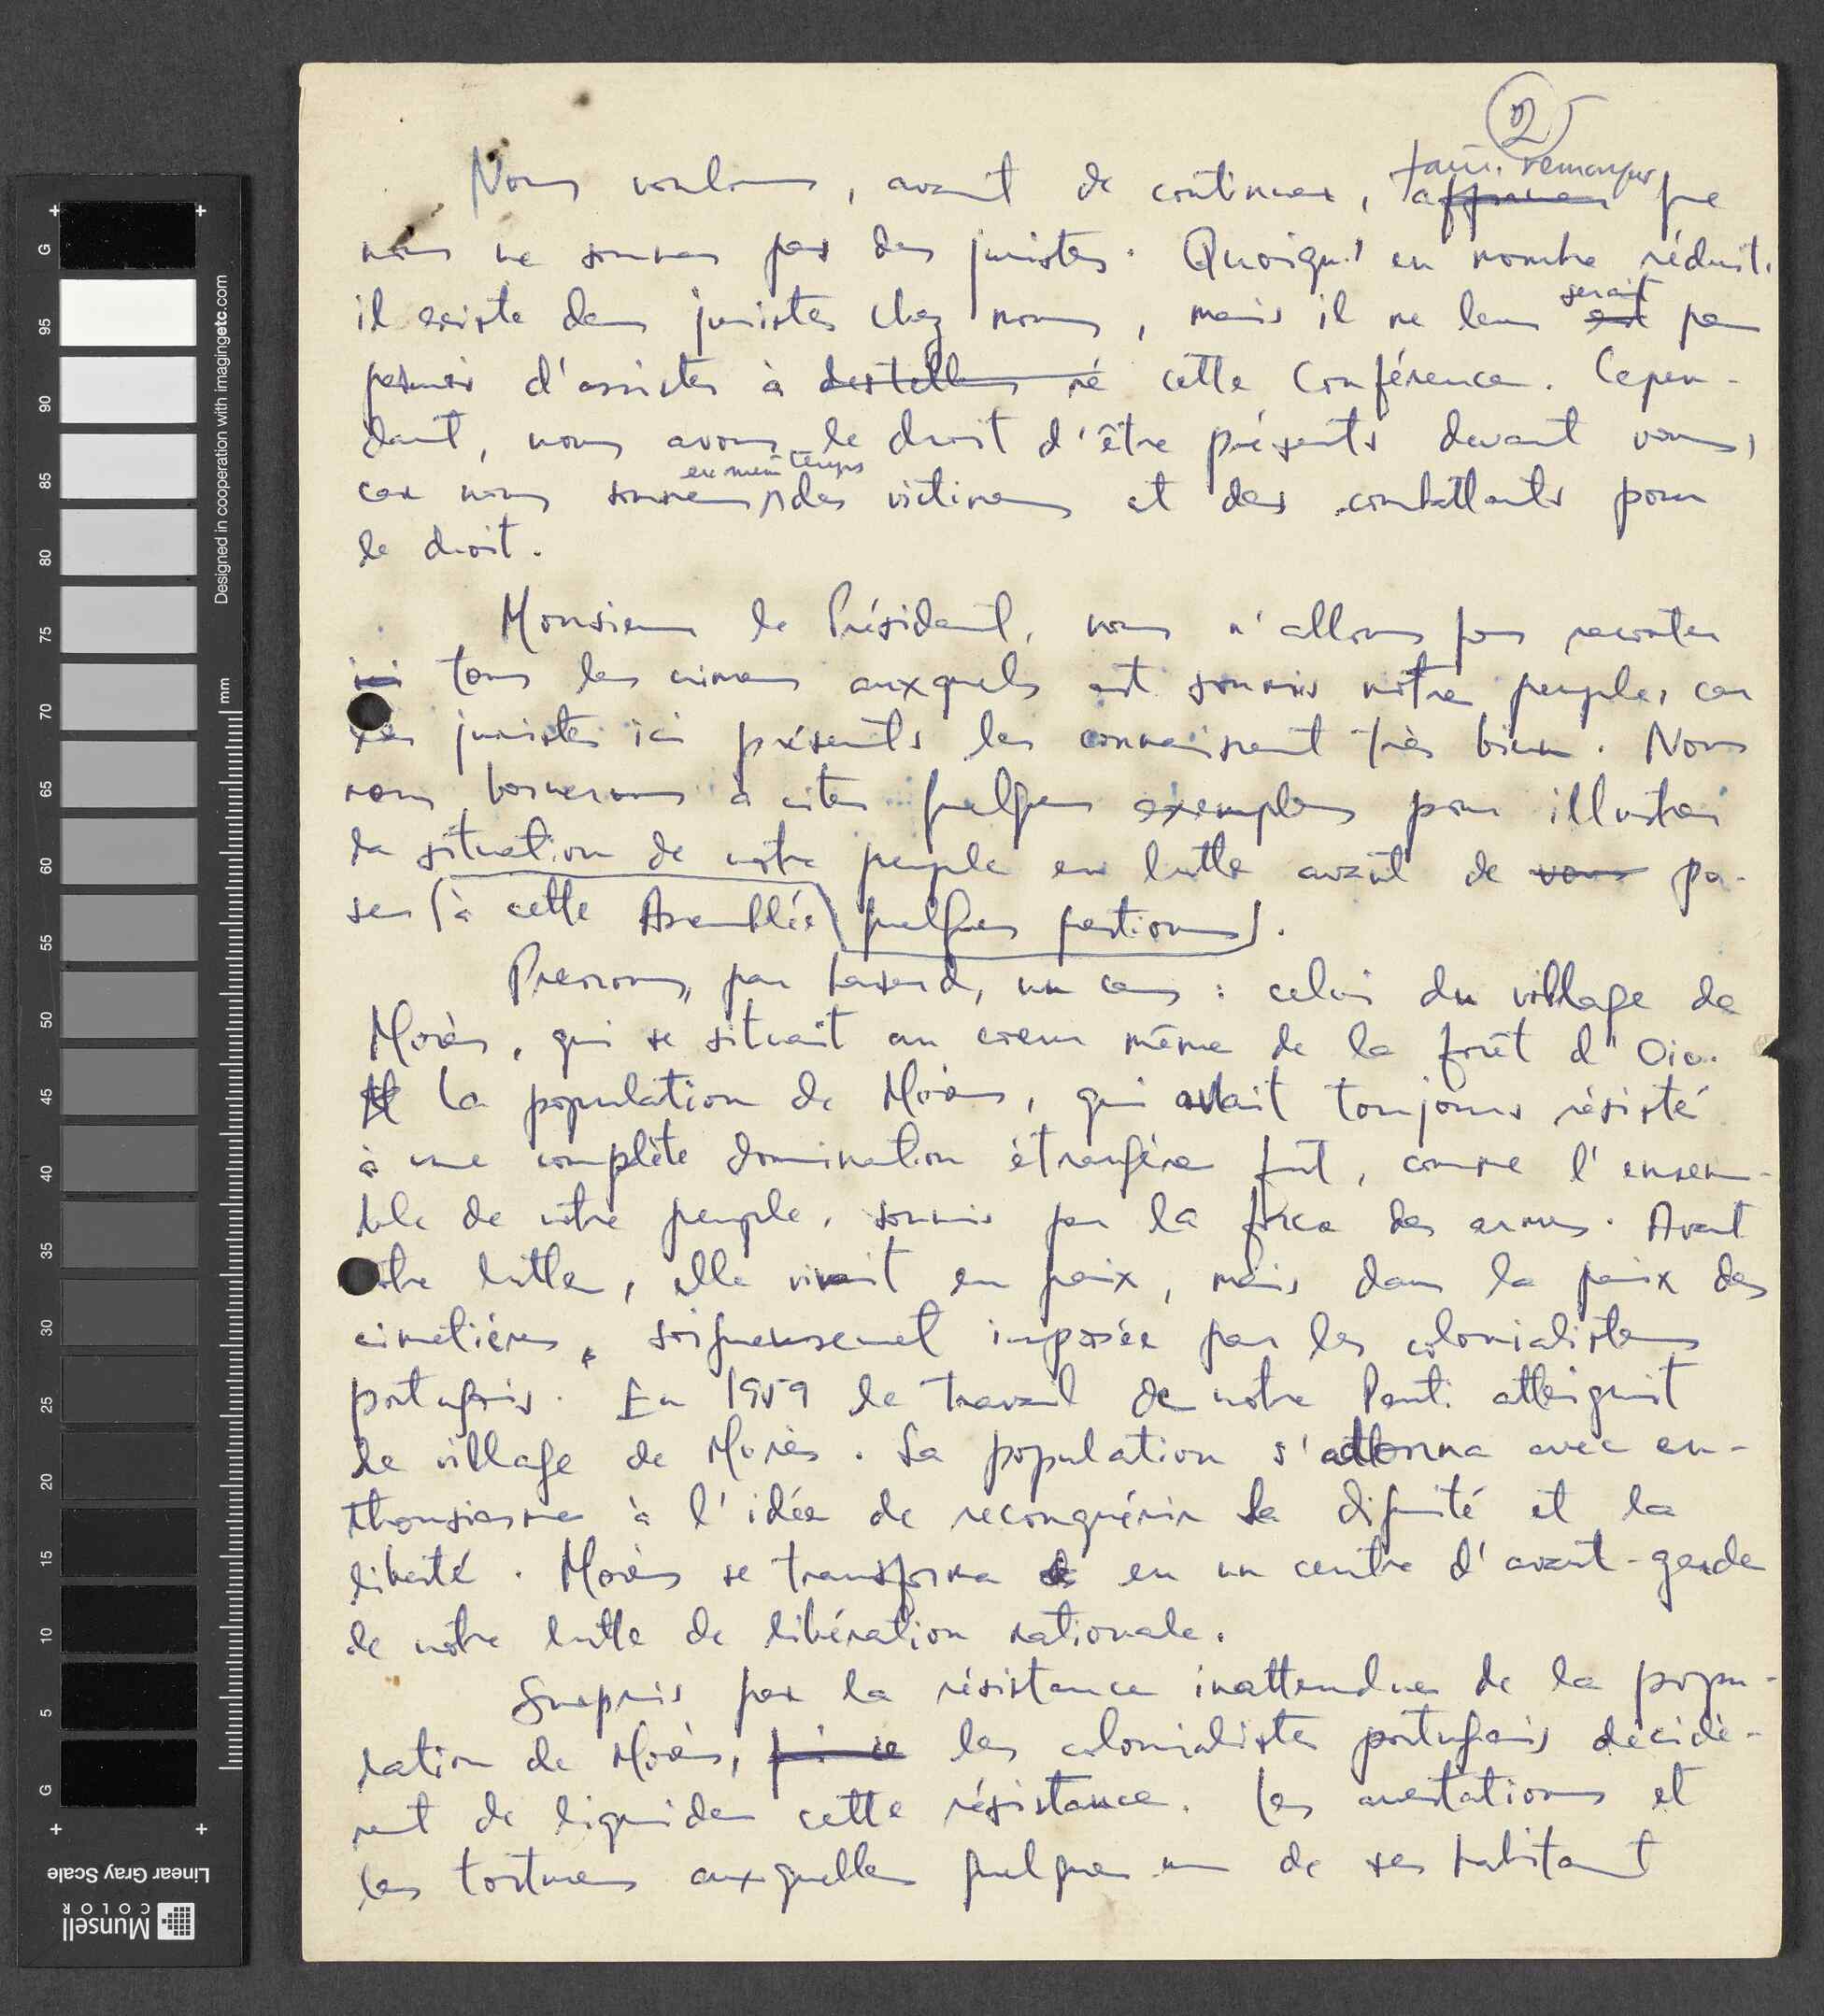 2
faire remarquer
Nous voulons, avant de continuer, affirmer que
nous ne sommes pas des juristes. Quoiqu'en nombre réduit,
serait
il existe des juristes chez nous, mais il ne leur est pas
permis d'assister à cette Conférence. Cepen-
dant, nous avons le droit d'être présents devant vous,
en même temps
car nous sommes des victimes et des combattants pour
le droit.
Monsieur le Président, nous n'allons pas raconter
ici tous les crimes auxquels est soumis notre peuple, car
les juristes ici présents les connaissent très bien. Nous
nous bornerons à citer quelques exemples pour illustrer
la situation de notre peuple en lutte avant de vous po-
ser (à cette Assemblée) quelques questions).
Prenons, par hasard, un cas : celui du village de
Morès, qui se situait au coeur même de la forêt d'Oio.
La population de Morès, qui avait toujours résisté
à une complète domination étrangère fut, comme l'ensem-
ble de notre peuple, soumis par la force des armes. Avant
notre lutte, elle vivait en paix, mais dans la paix des
cimetières, soigneusement imposée par les colonialistes
portugais. En 1959 le travail de notre Parti atteignit
le village de Morès. La population s'adonna avec en-
thousiasme à l'idée de reconquérir sa dignité et la
liberté. Morès se transforma en un centre d'avant-garde
de notre lutte de libération nationale.
Surpris par la résistance inattendue de la popu-
lation de Morès, les colonialistes portugais décidè-
rent de liquider cette résistance. Les arrestations et
les tortures auxquelles quelques un de ses habitant
G
95
90
85
80
75
70
65
60
55
50
45
40
35
30
25
20
15
10
5
G
mm
Designed in cooperation with imagingetc.com
Linear Gray Scale
Munsell
COLOR